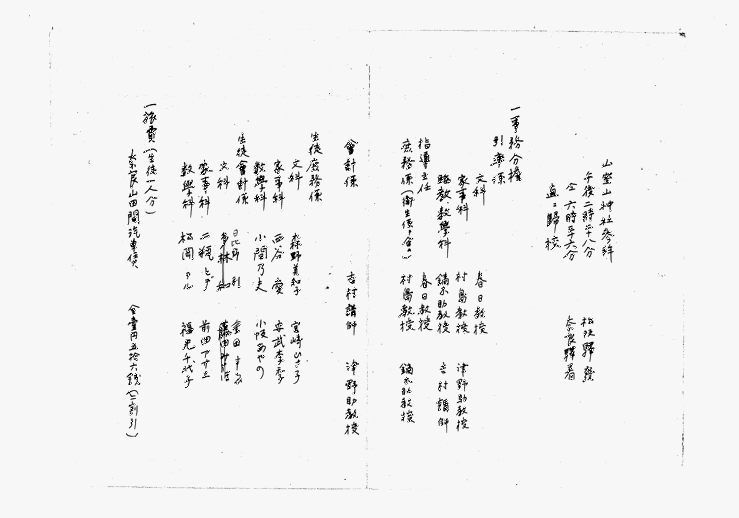 山室山神社参拝
午後二時半八分 松阪驛發
仝 六時五十六分 奈良驛着
直ニ歸校
一事務分擔
引率係
文科 春日教授
家事科 村島教授 津野助教授
數學科 鏑木助教授 吉村講師
指導主任 春日教授
庶務係(衛生係ヲ含ム) 村島教授 鏑木助教授
會計係 吉村講師 津野助教授
生徒庶務係
文科 森野美知子 宮崎ひさ子
家事科 西谷愛 安武李子
數學科 小関乃夫 小坂あやの
生徒會計係
文科
家事科 二瓶ヒデ 前田アサエ
數學科 松岡テル 福光千代子
一旅費(生徒一人分)
奈良山田間汽車賃 金壹円五拾六錢(二割引)